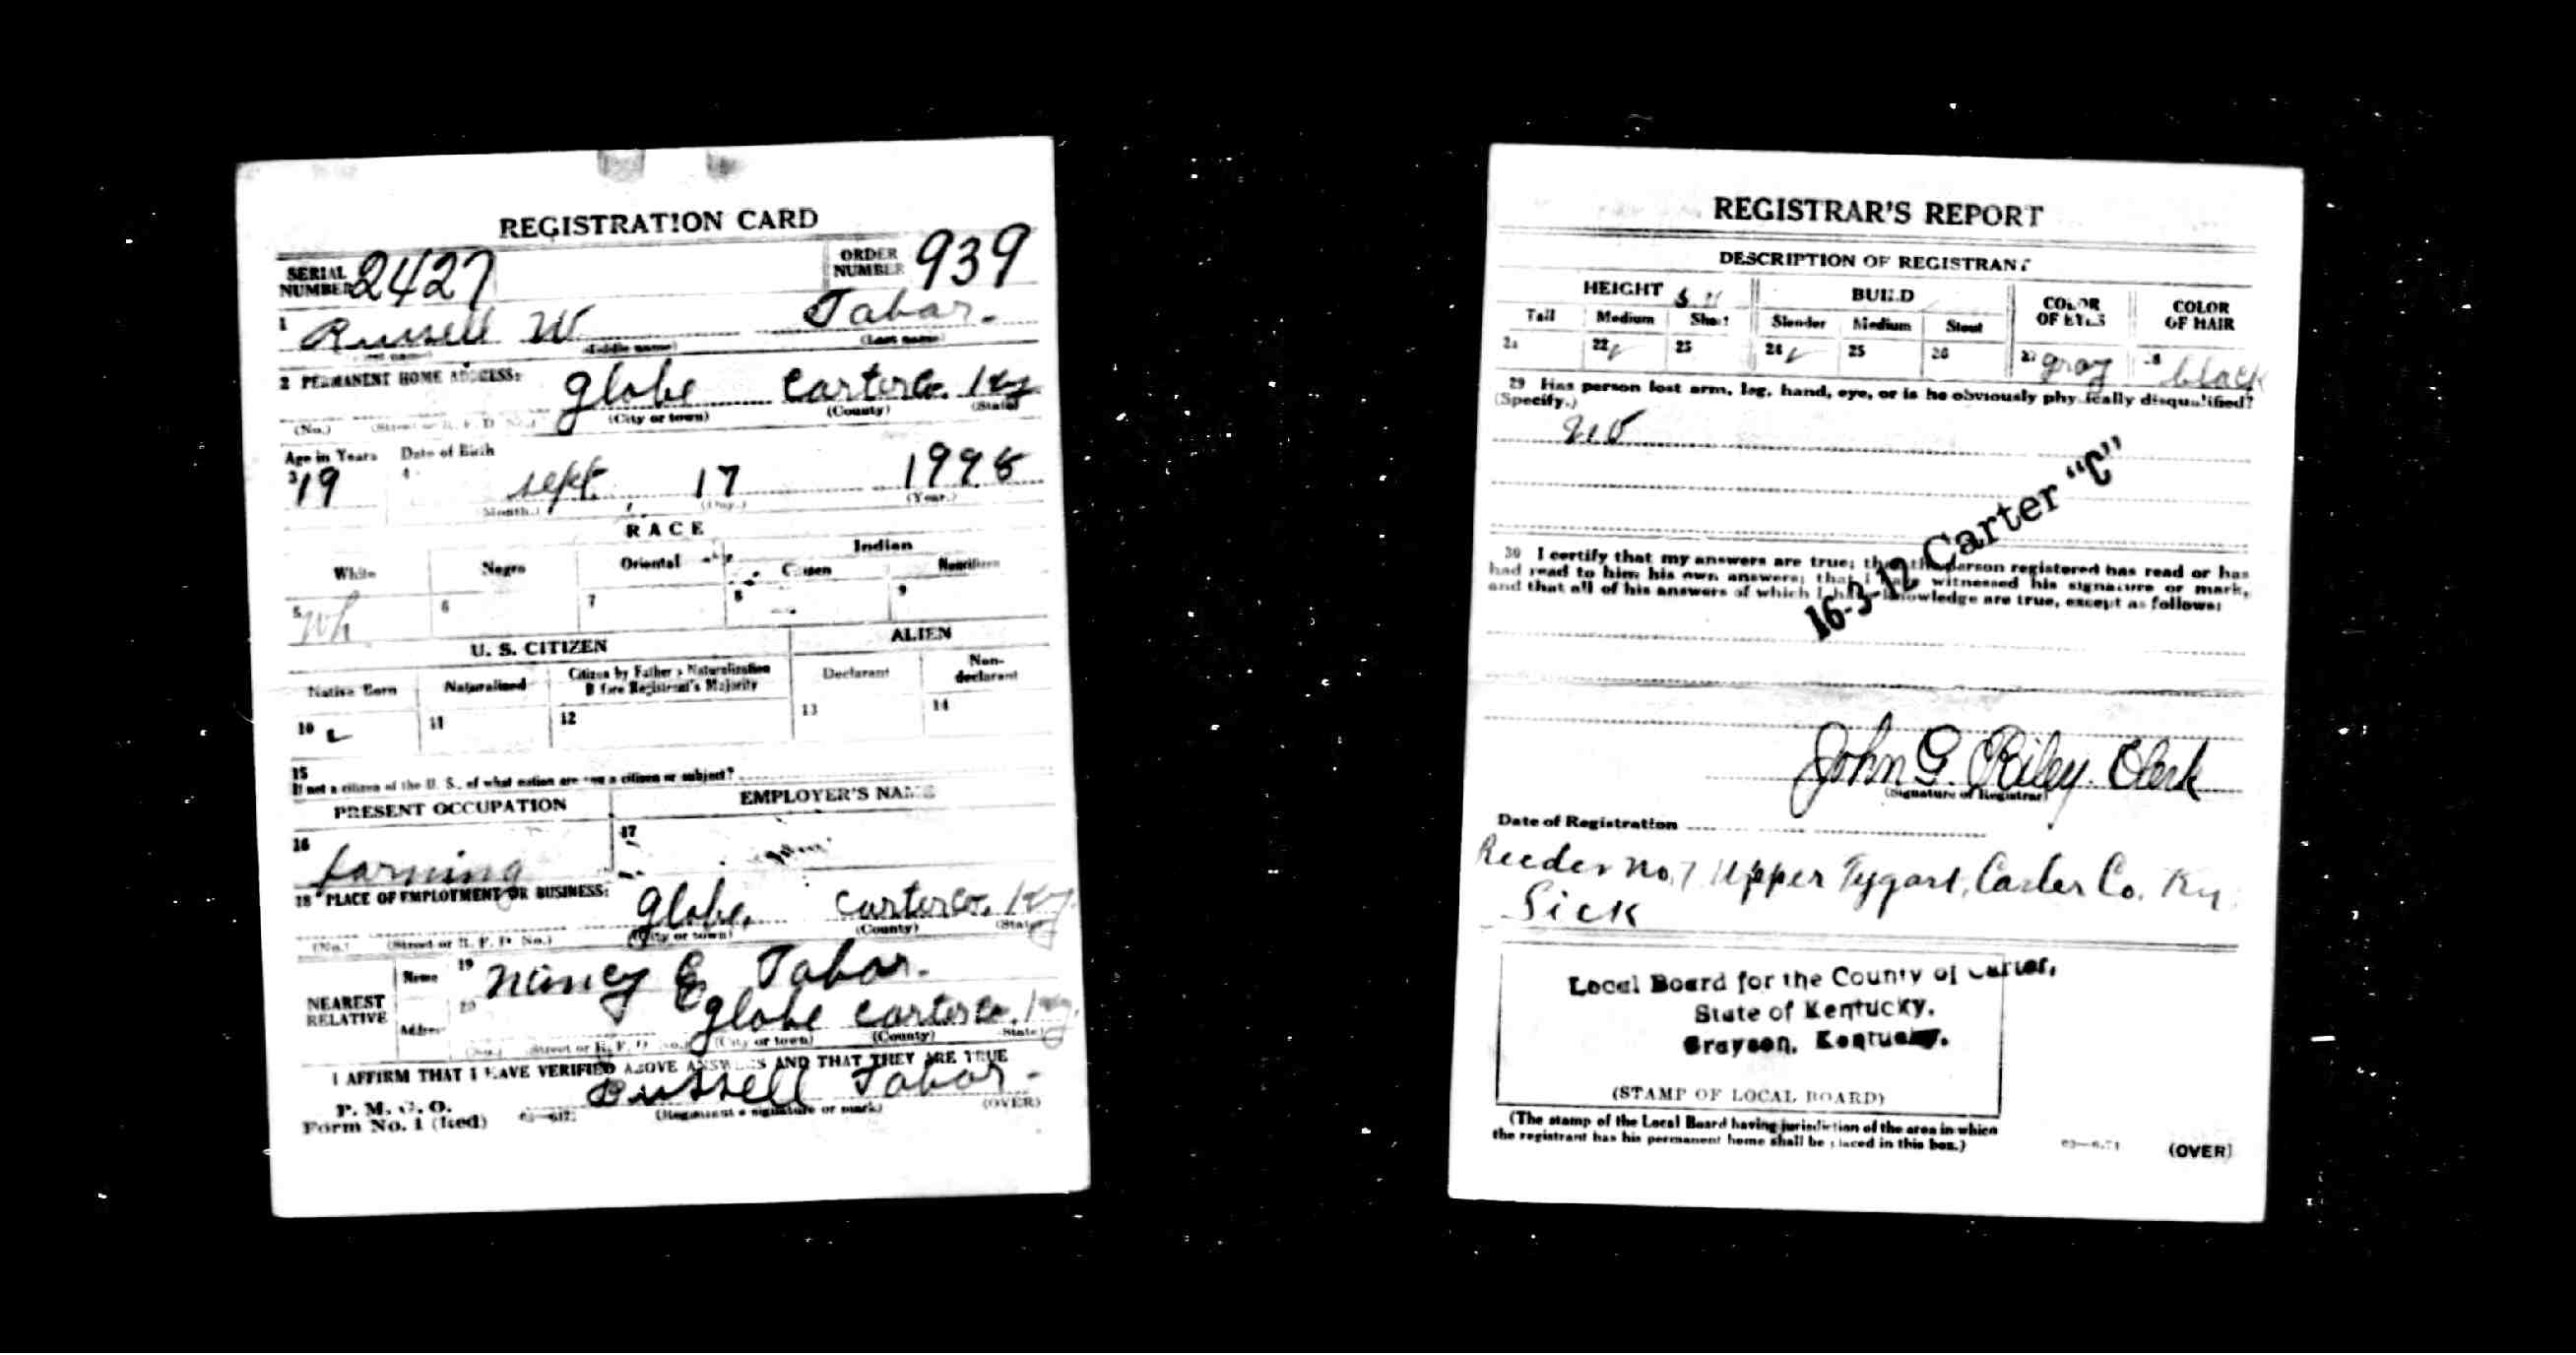 REGISTRATION CARD
SERIAL NUMBER 2427
ORDER NUMBER 939
1 Russell W Tabar.
(Middle name) (Last name)
2 PERMANENT HOME ADDRESS: Globe Carter Co. Ky
(No.) (Street or R. F. D. No.) (City or town) (County) (State)
Age in Years Date of Birth
3 19 4 sept. 17 1998
(Month.) (Day.) (Year.)
RACE
White Negro Oriental Indian
Citizen Noncitizen
5 Wh 6 7 8 9
U. S. CITIZEN ALIEN
Native Born Naturalized Citizen by Father's Naturalization Before Registrant's Majority Declarant Non-declarant
10 11 12 13 14
15
If not a citizen of the U. S., of what nation are you a citizen or subject?
PRESENT OCCUPATION EMPLOYER'S NAME
16 farming 17
18 PLACE OF EMPLOYMENT OR BUSINESS: Globe, Carter Co. Ky
(No.) (Street or R. F. D. No.) (City or town) (County) (State)
NEAREST RELATIVE Name 19 Nancy E Tabar.
Address 20 Globe Carter Co. Ky.
(No.) (Street or R. F. D. No.) (City or town) (County) (State)
I AFFIRM THAT I HAVE VERIFIED ABOVE ANSWERS AND THAT THEY ARE TRUE
Russell Tabar.
P. M. G. O.
Form No. 1 (Red) (Registrant's signature or mark) (OVER)
REGISTRAR'S REPORT
DESCRIPTION OF REGISTRANT
HEIGHT BUILD COLOR OF EYES COLOR OF HAIR
Tall Medium Short Slender Medium Stout
21 22 ✓ 23 24 ✓ 25 26 27 gray 28 black
29 Has person lost arm, leg, hand, eye, or is he obviously physically disqualified?
(Specify.)
no
16-3-12 Carter "C"
30 I certify that my answers are true; that the person registered has read or has
had read to him his own answers; that I have witnessed his signature or mark,
and that all of his answers of which I have knowledge are true, except as follows:
John G. Riley. Clerk
(Signature of Registrar)
Date of Registration
Reeder No. 7 Upper Tygart, Carter Co. Ky.
Sick
Local Board for the County of Carter,
State of Kentucky.
Grayson, Kentucky.
(STAMP OF LOCAL BOARD)
(The stamp of the Local Board having jurisdiction of the area in which
the registrant has his permanent home shall be placed in this box.)
(OVER)